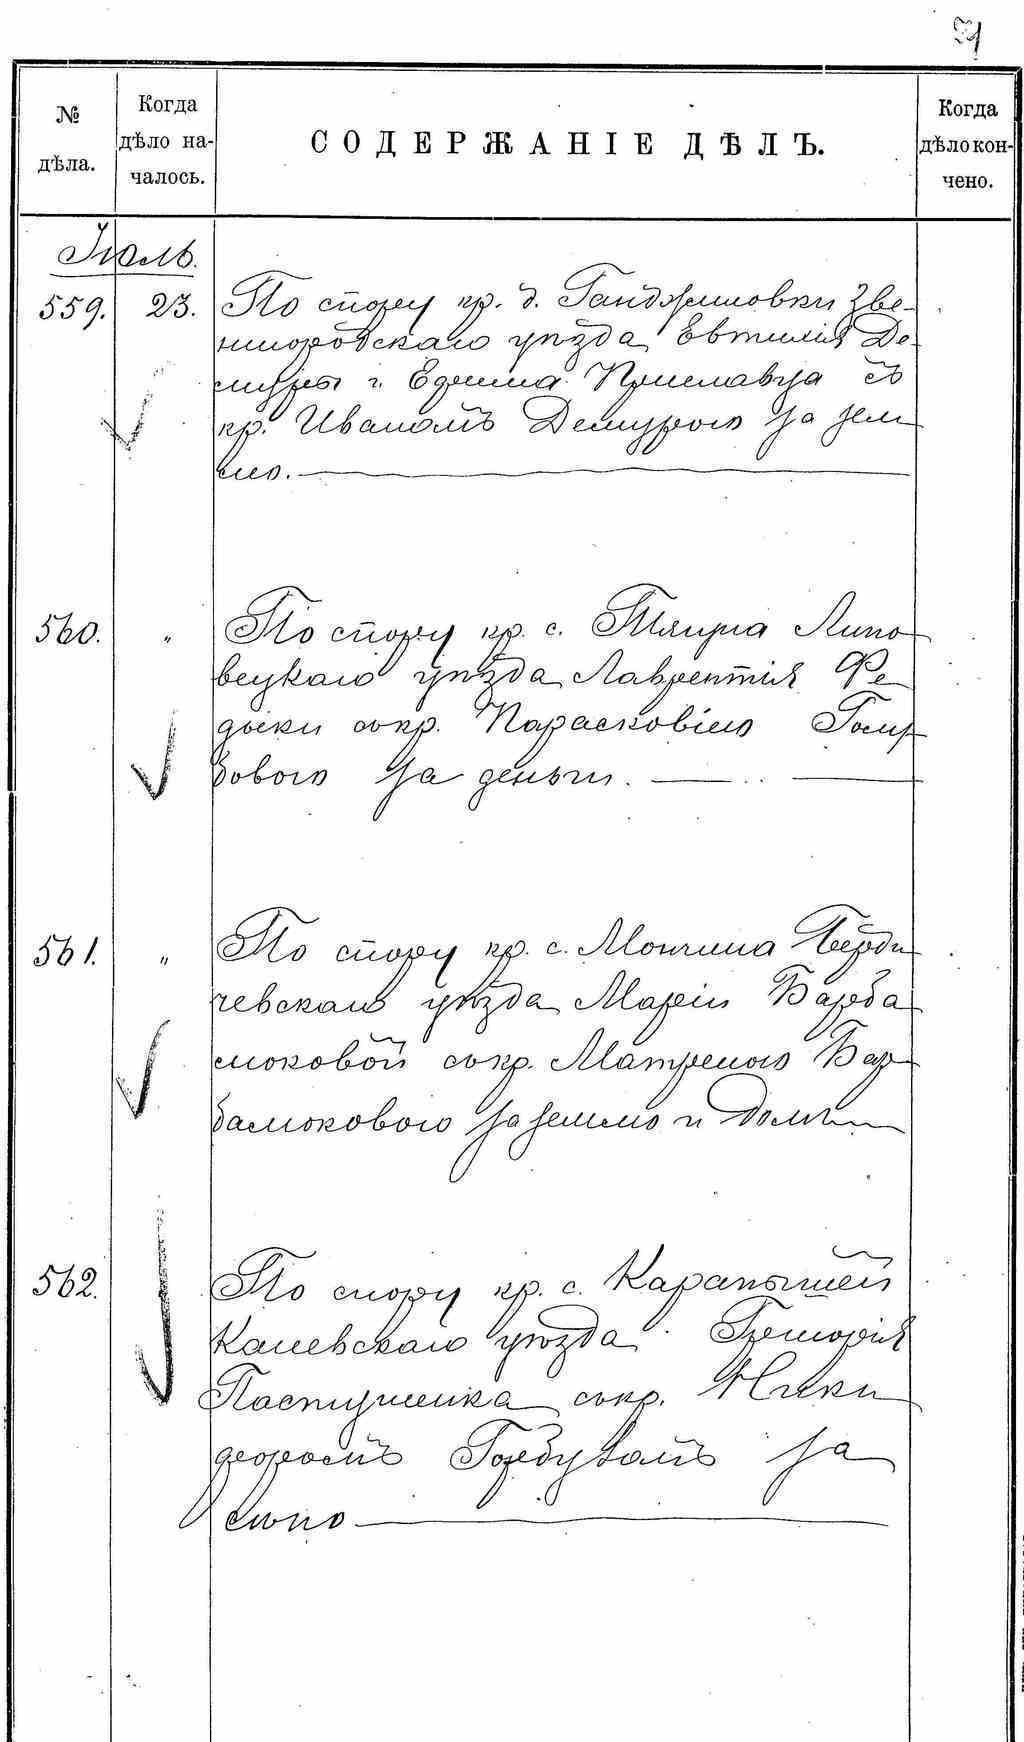 № дѣла.
Когда дѣло на-
чалось.
СОДЕРЖАНІЕ ДѢЛЪ.
Когда дѣло кон-
чено.
Июль.
559. 23. По спору кр. д. Ганджиловки Зве-
нигородскаго уѣзда Евтилія Де-
муры и Едима Приславца съ
кр. Иваномъ Демурою за зем
лю.
560. " По спору кр. с. Тягуна Липо
вецкаго уѣзда Лаврентія Фе
дыки съ кр. Парасковіею
бовою за деньги.
561. " По спору кр. с. Мончина Берди
чевскаго уѣзда Маріи Барба
люковой съ кр. Матреною Бар
балюковою за землю и домъ
562. По спору кр. с. Карапышей
Каневскаго уѣзда Григорія
Пастушенка съ кр. Ники
форомъ Горбузомъ за
сѣно